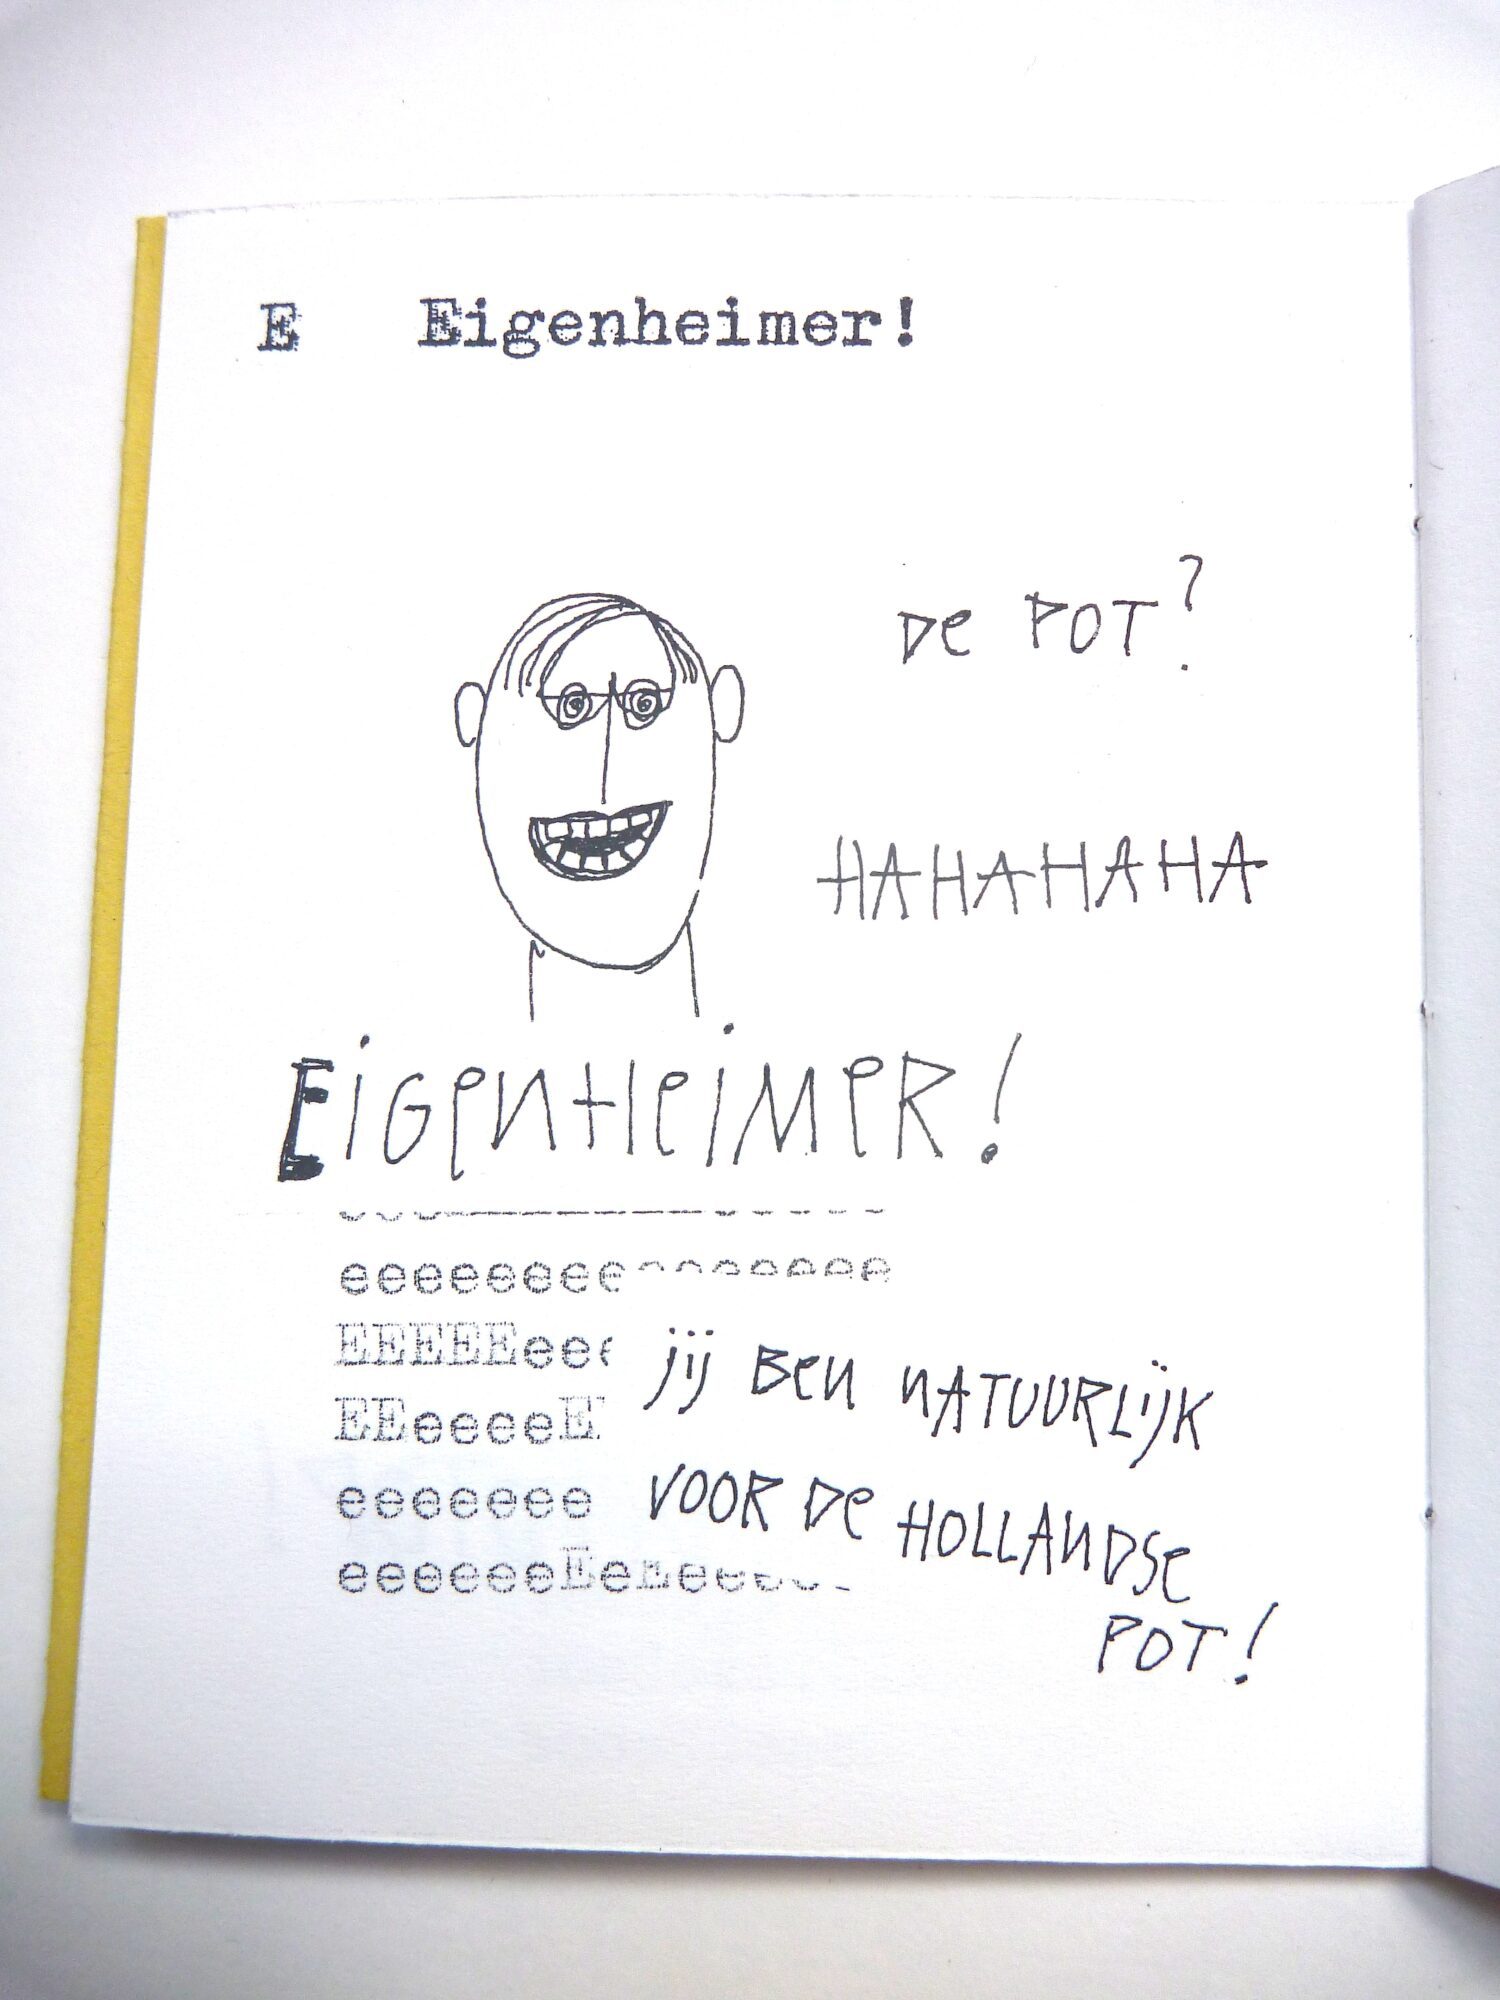 E Eigenheimer!
DE POT?
HAHAHAHA
EIGENHEIMER!
eeeeeeeeeeeeeee
EEEEEeee
EEeeeeE
eeeeeee
jij BEN NATUURLIJK
VOOR DE HOLLANDSE
POT!
eeeeeeEeEeee